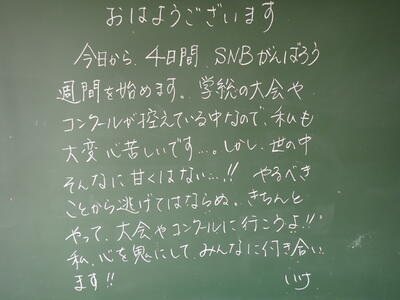 おはようございます
今日から、4日間、SNBがんばろう
週間を始めます。学総の大会や
コンクールが控えている中なので、私も
大変心苦しいです…。しかし、世の中
そんなに甘くはない…!! やるべき
ことから逃げてはならぬ。きちんと
やって、大会やコンクールに行こうよ!!
私、心を鬼にして、みんなに付き合い
ます!!